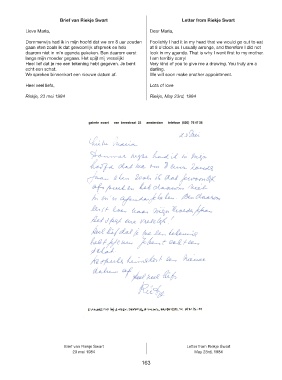 Brief van Riekje Swart
Letter from Riekje Swart
Lieve Maria,
Dommerwijs had ik in mijn hoofd dat we om 8 uur zouden
gaan eten zoals ik dat gewoonlijk afspreek en heb
daarom niet in m'n agenda gekeken. Ben daarom eerst
langs mijn moeder gegaan. Het spijt mij vreselijk!
Heel lief dat je me een tekening hebt gegeven. Je bent
echt een schat.
We spreken binnenkort een nieuwe datum af.
Heel veel liefs,
Riekje, 23 mei 1984
Dear Maria,
Foolishly I had it in my head that we would go out to eat
at 8 o'clock as I usually arrange, and therefore I did not
look in my agenda. That is why I went first to my mother.
I am terribly sorry!
Very kind of you to give me a drawing. You truly are a
darling.
We will soon make another appointment.
Lots of love
Riekje, May 23rd, 1984
galerie swart van breestraat 23 amsterdam telefoon 020
23 mei
Lieve Maria
Dommerwijs had ik in mijn
hoofd dat we om 8 uur zouden
gaan eten zoals ik dat gewoonlijk
afspreek en heb daarom niet
in m'n agenda gekeken. Ben daarom
eerst langs mijn moeder gegaan
Het spijt me vreselijk!
Heel lief dat je me een tekening
hebt gegeven. Je bent echt een
schat.
We spreken binnenkort een nieuwe
datum af
Heel veel liefs
Riekje
Brief van Riekje Swart
23 mei 1984
Letter from Riekje Swart
May 23rd, 1984
163